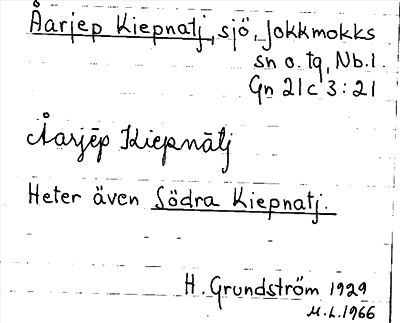 Åarjep Kiepnatj, sjö, Jokkmokks
sn o. tg, Nb.l.
Gn 21c 3:21
Åarjēp Kiepnātj
Heter även Södra Kiepnatj.
H. Grundström 1929
M.L. 1966